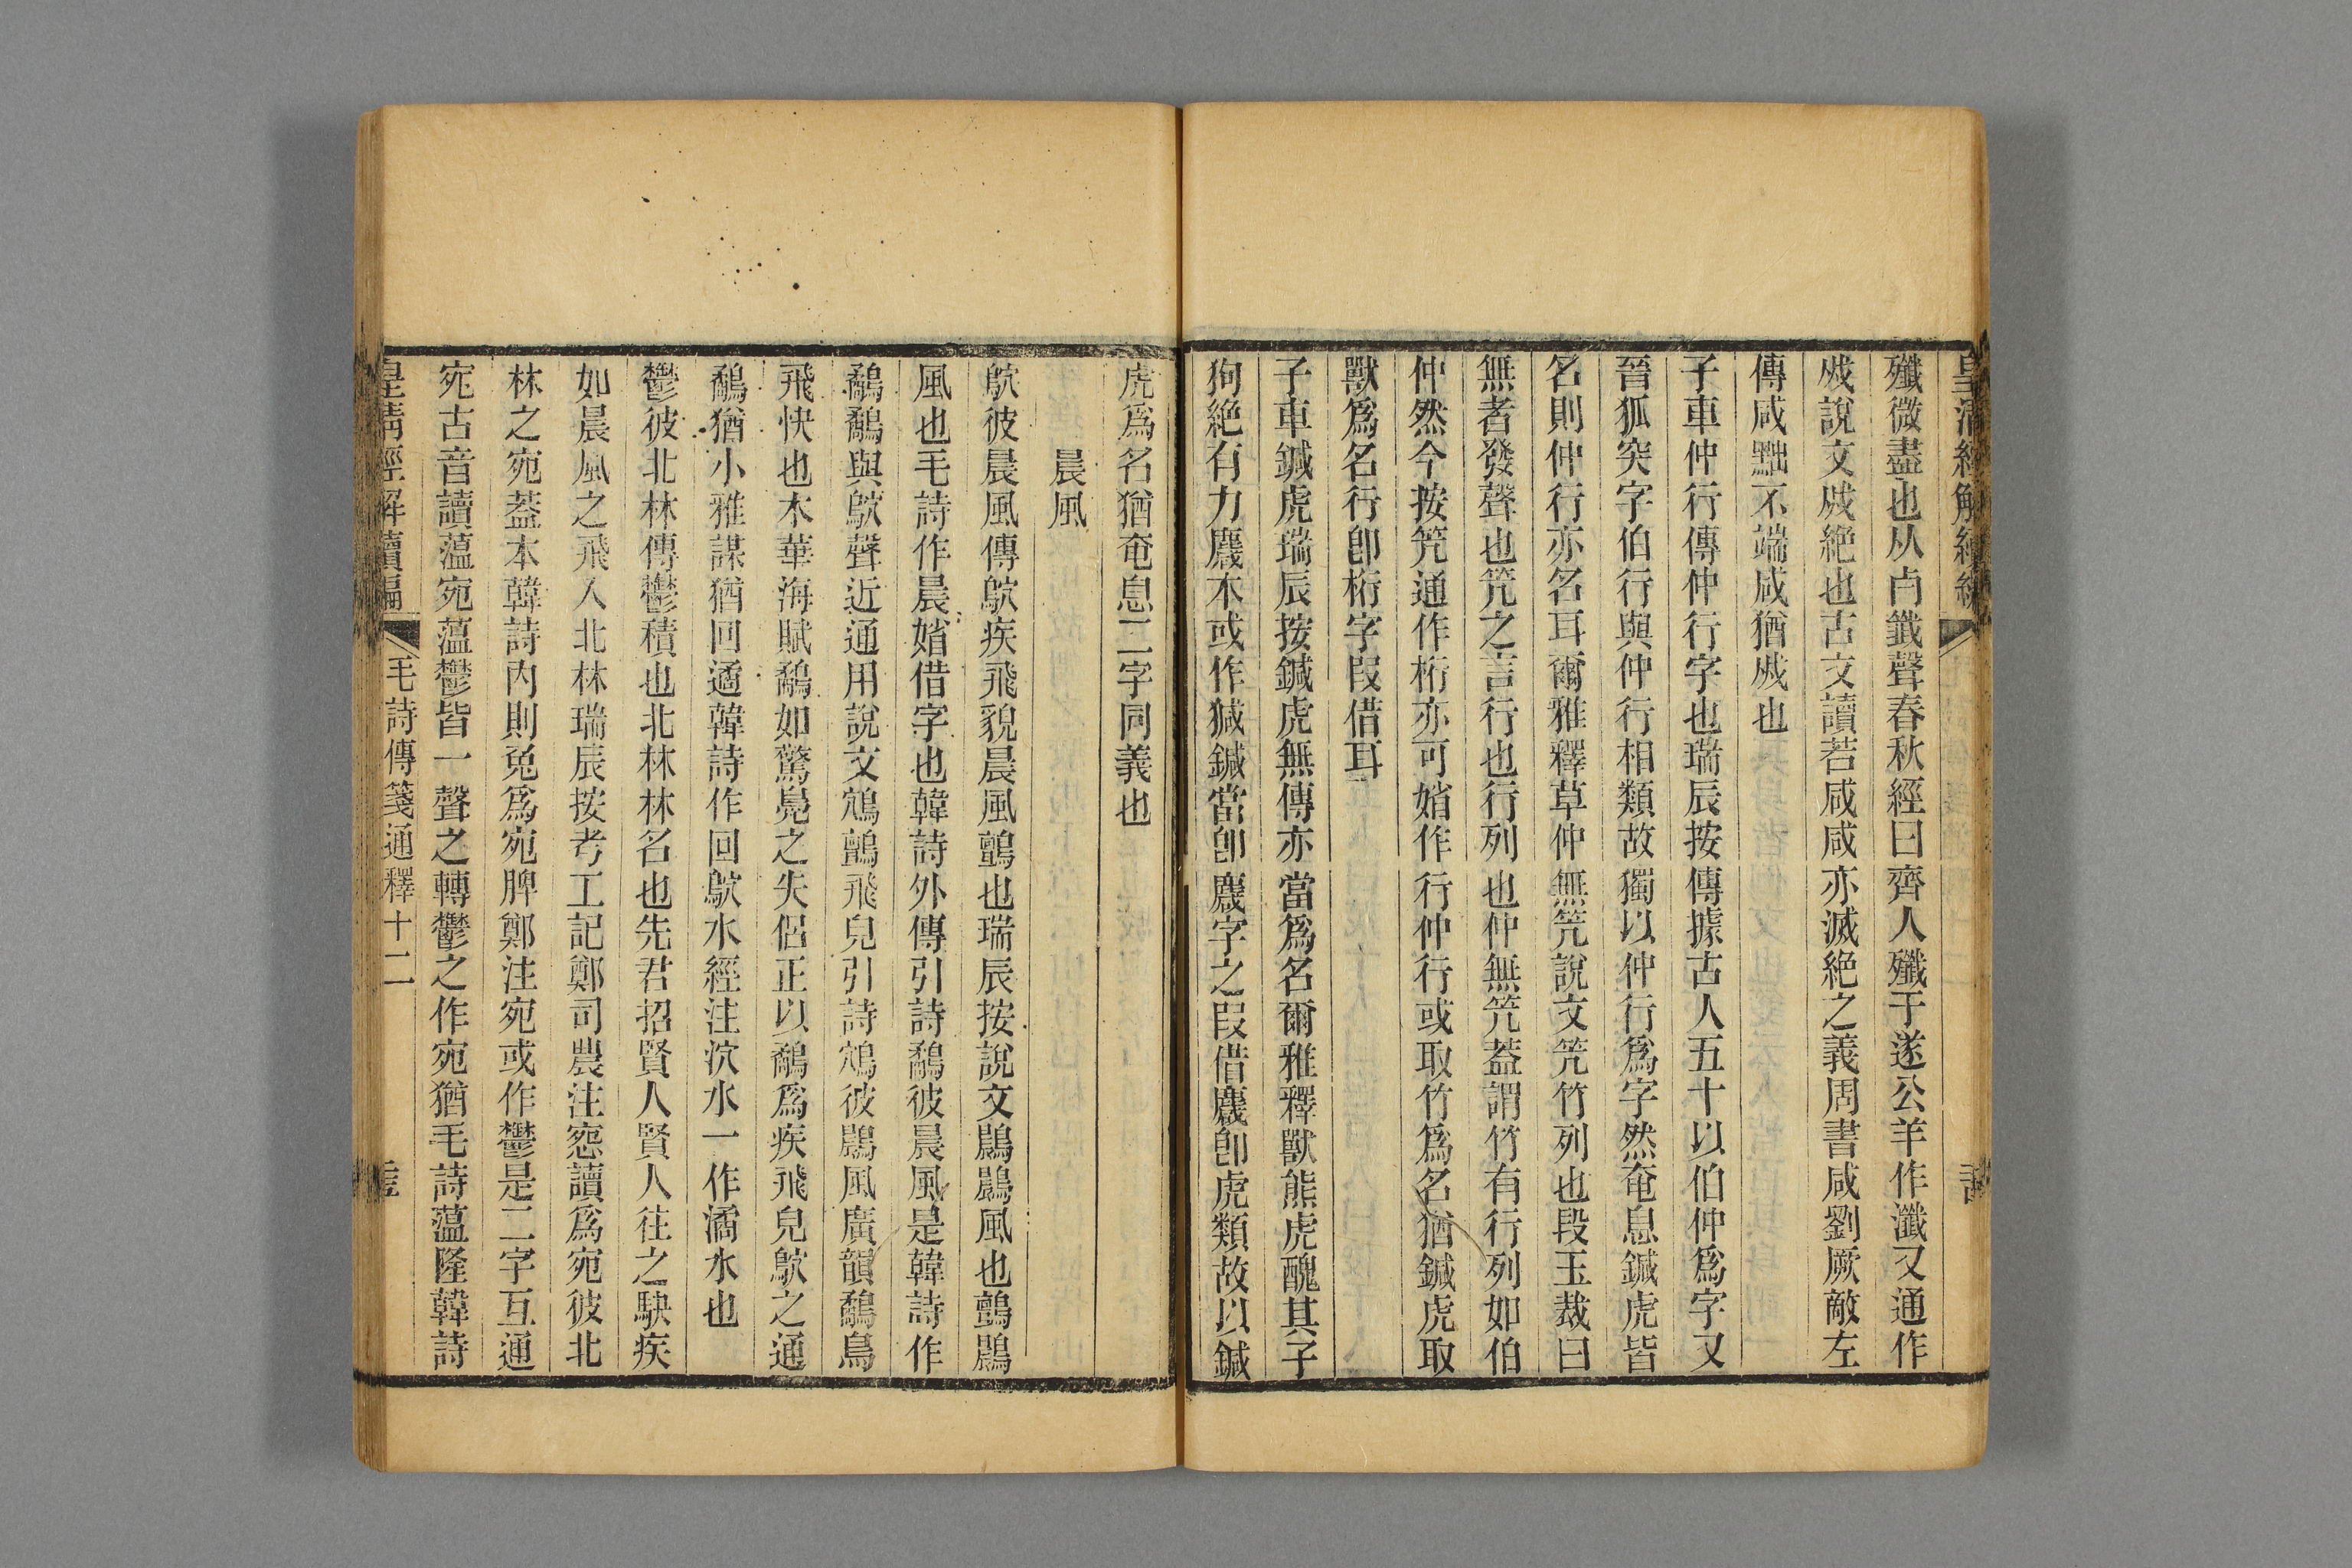 皇清經解續編
殲微盡也从占韱聲春秋經曰齊人殲于遂公羊作瀸又通作
烕說文烕絕也古文讀若咸咸亦滅絕之義周書咸劉厥敵左
傳咸黜不端咸猶烕也
子車仲行傳仲行字也瑞辰按傳據古人五十以伯仲爲字又
晉狐突字伯行與仲行相類故獨以仲行爲字然奄息鍼虎皆
名則仲行亦名耳爾雅釋草仲無笐說文笐竹列也段玉裁曰
無者發聲也笐之言行也行列也仲無笐蓋謂竹有行列如伯
仲然今按笐通作桁亦可婿作行仲行或取竹爲名猶鍼虎取
獸爲名行卽桁字叚借耳
子車鍼虎瑞辰按鍼虎無傳亦當爲名爾雅釋獸熊虎醜其子
狗絕有力麙本或作㺂鍼當卽麙字之叚借麙卽虎類故以鍼
虎爲名猶奄息二字同義也
晨風
鴥彼晨風傳鴥疾飛貌晨風鸇也瑞辰按說文鷐鷐風也鸇鷐
風也毛詩作晨婿借字也韓詩外傳引詩鷸彼晨風是韓詩作
鷸鷸與鴥聲近通用說文鴪鸇飛皃引詩鴪彼鷐風廣韻鷸鳥
飛快也木華海賦鷸如驚鳧之失侶正以鷸爲疾飛皃鴥之通
鷸猶小雅謀猶回遹韓詩作回鴥水經注沇水一作潏水也
鬱彼北林傳鬱積也北林林名也先君招賢人賢人往之駃疾
如晨風之飛入北林瑞辰按考工記鄭司農注惌讀爲宛彼北
林之宛蓋本韓詩內則兔爲宛脾鄭注宛或作鬱是二字互通
宛古音讀薀宛薀鬱皆一聲之轉鬱之作宛猶毛詩薀隆韓詩
皇淸經解續編
毛詩傳箋通釋十二